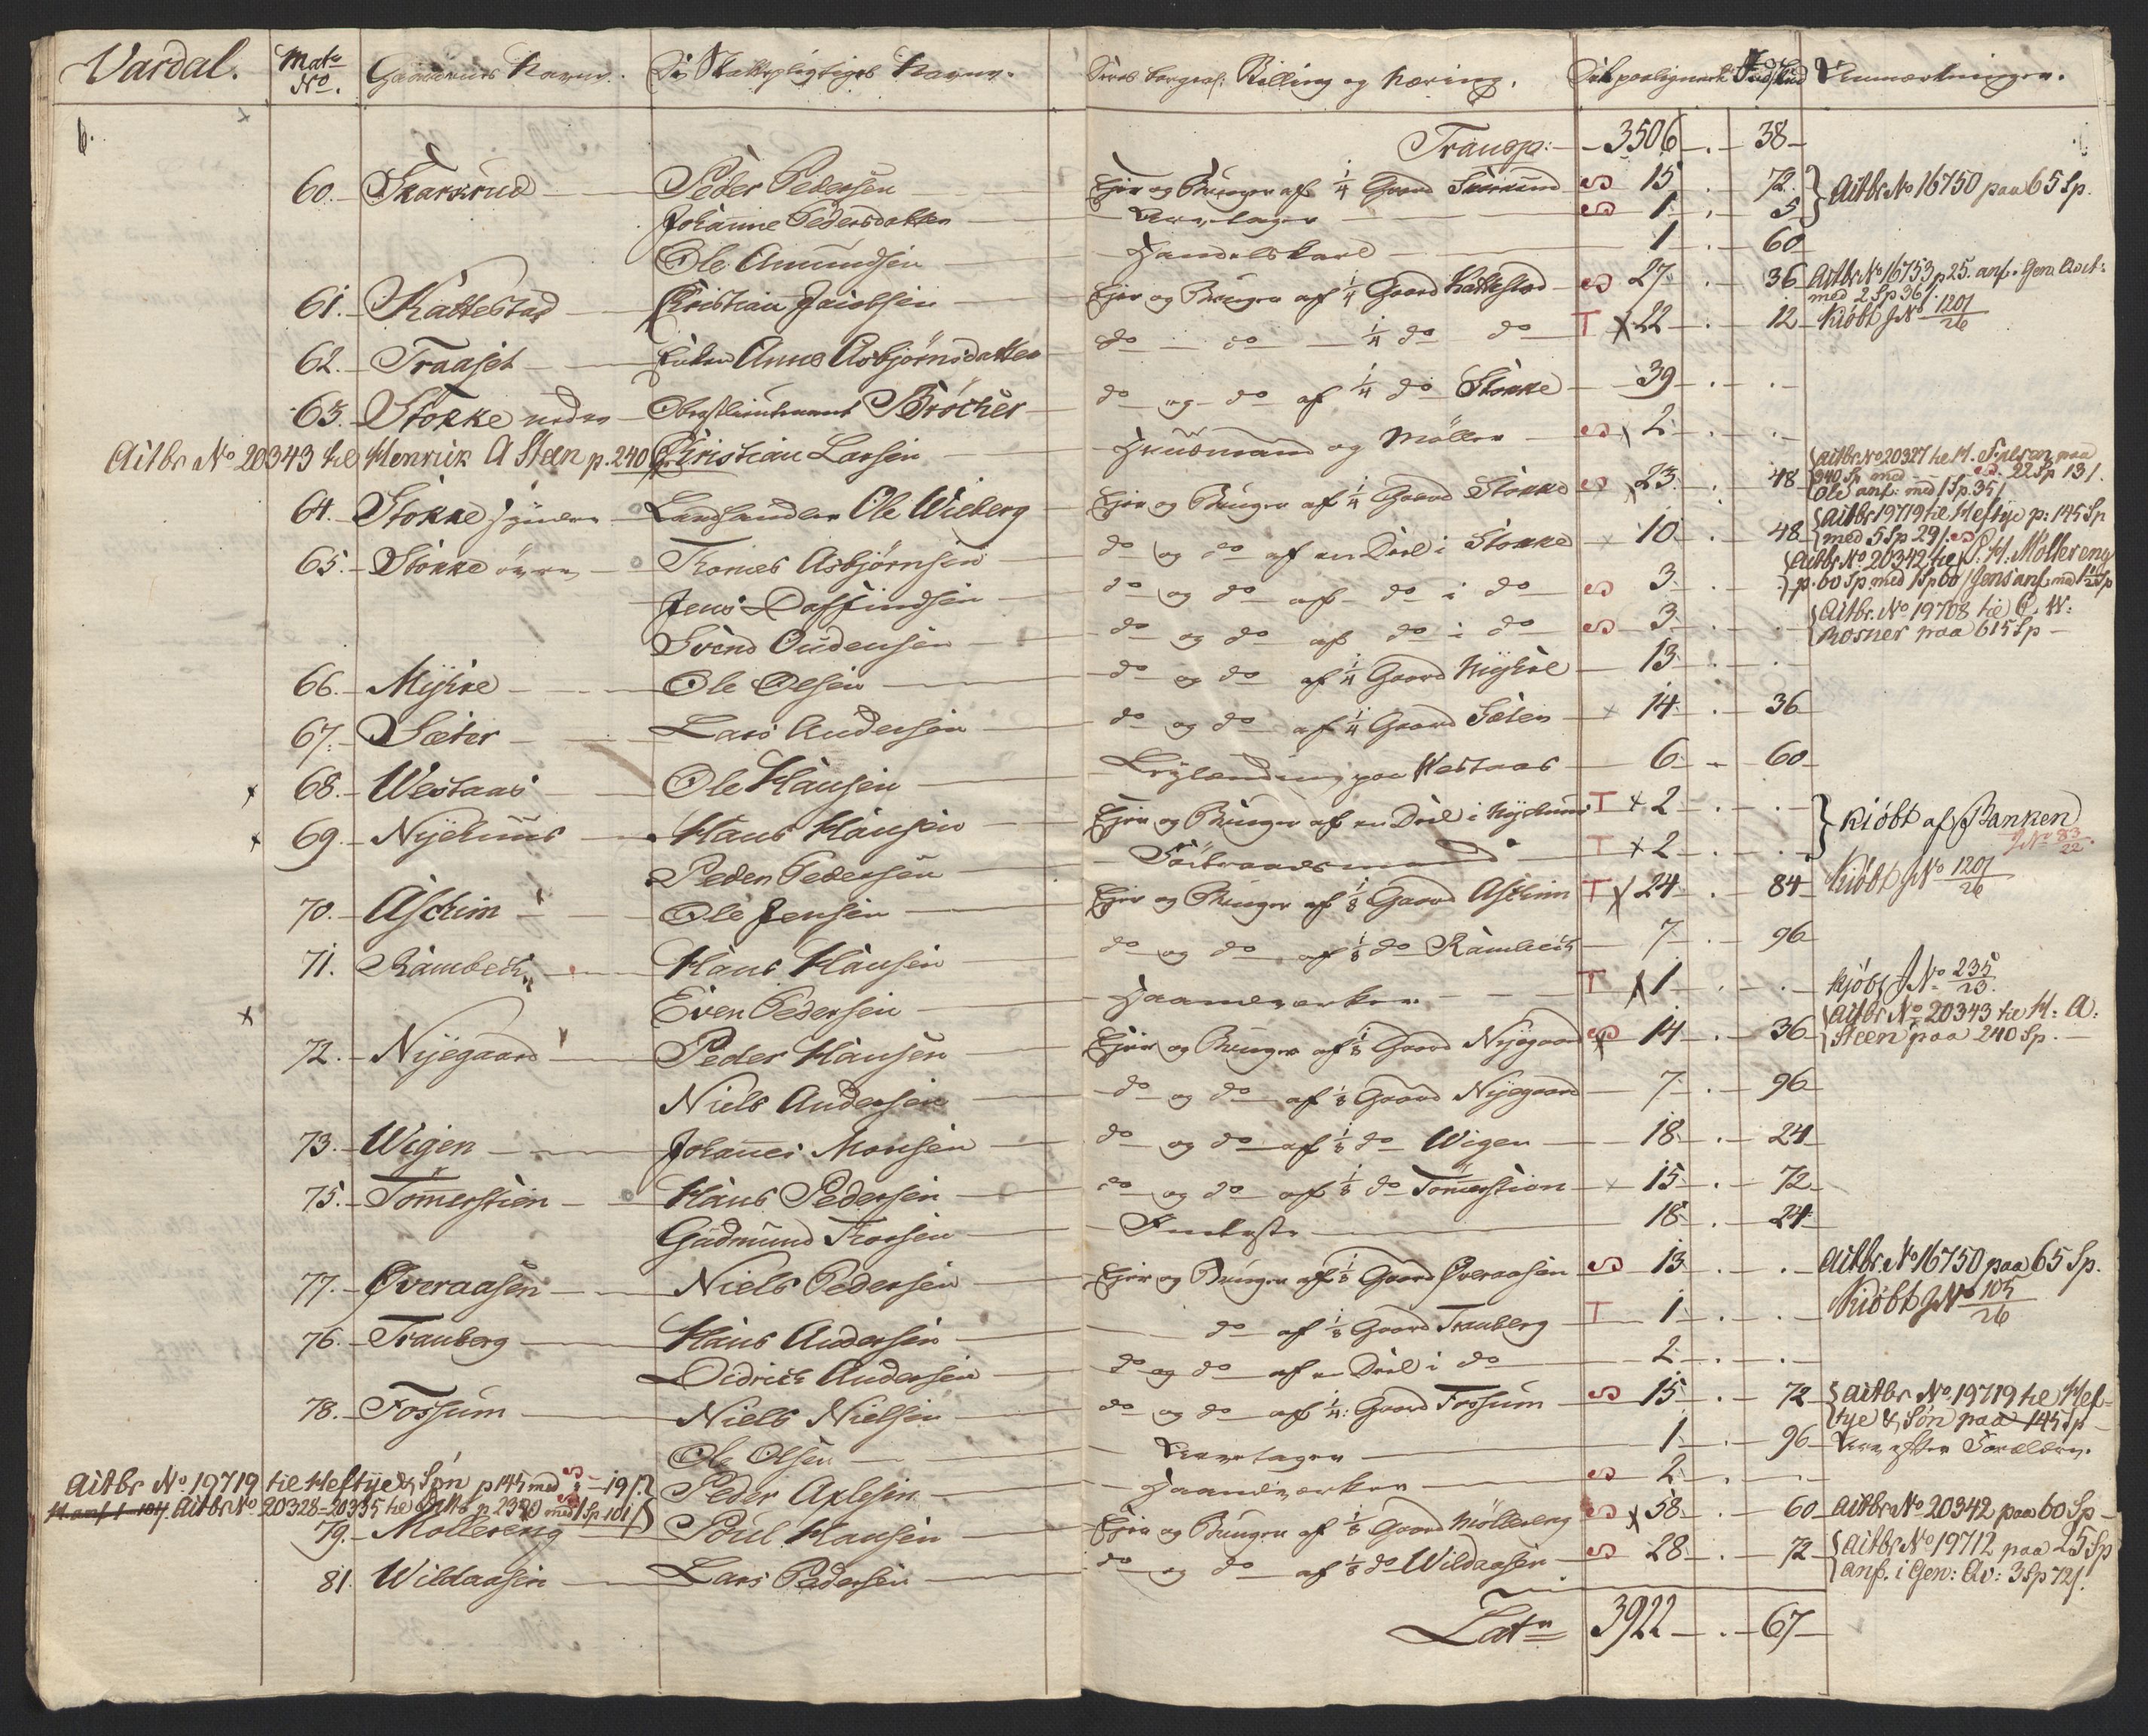 Vardal. Mat. No. Gaardenes Navne. De Skattepligtiges Navne. Deres borgerl: Stilling og Næring. Det paalignede Indskud Anmærkninger.
6.
Transp: 3506 . 38
60. Skarsrud Peder Pedersen Ejer og Bruger af 1/4 Gaard Skarsrud S 15 . 72. } Aitbr No 16750 paa 65 Sp.
Johanne Pedersdatter Livøtager S 1 . 5
Ole Amundsen Handelskarl 1 . 60
61. Kattestad Christian Jacobsen Ejer og Bruger af 1/4 Gaard Kattestad S 27 . 36 Aitbr. No 16753 p 25. anf. Gen. Avit: med 2 Sp 36 /.
62. Traaset Enken Anne Asbjørnsdatter do do 1/4 do do T x 22 . 12 Kiøbt JNo 1201/26
63. Stokke nedre Obrestlieutenant Bröcher do og do af 1/4 do Stokke 39 . .
Aitbr No 20343 til Henrik A Steen p. 240 Christian Larsen Huusmand og Møller S x 2 . .
64. Stokke søndre Landhandler Ole Wieberg Ejer og Bruger af 1/4 Gaard Stokke S x 23 . 48 { Aitbr. No 20327 til H. paa 940 Sp med S. 22 Sp 13 /. Ole anf: med 1 Sp. 35 /
65. Stokke øvre Thomes Asbjørnsen do og do af en Deel i Stokke x 10 . 48 { Aitbr 19719 til Heftye p: 145 Sp med 5 Sp 29 /. S
Jens Daffindsen do og do af do i do S 3 . . { Aitbr. No 20342 til P. H. Møllereng p. 60 Sp. med 1 Sp 60 / Jens anf. med Sp
Svend Oudensen do og do af do i do S 3 . . { Aitbr. No 19708 til C. W: Rosner paa 615 Sp
66. Mÿhre Ole Olsen do og do af 1/4 Gaard Mÿhre 13 . .
67. Sæter Lars Andersen do og do af 1/4 Gaard Sæter x 14 . 36
x 68. Westaas Ole Hansen Leylænding paa Westaas 6 . 60
x 69. Nÿehuus Hans Hansen Ejer og Bruger af en Deel i Nÿehuus T x 2 . . } Kiøbt af Banken JNo 83/22.
Peder Pedersen Föderaadsmand T x 2 . .
70. Aschim Ole Jensen Ejer og Bruger af 1/8 Gaard Aschim T x 24 . 84 Kiøbt JNo 1201/26
71. Rambech Hans Hansen do og do af 1/8 do Rambech 7 . 96
x Even Pedersen Haandverker T x 1 . . Kjøbt JNo 235/23.
72. Nÿegaard Peder Hansen Ejer og Bruger af 1/8 Gaard Nÿegaard S x 14 . 36 { Aitbr No 20343 til H: A: Steen paa 240 Sp.
Niels Andersen do og do af 1/8 Gaard Nÿegaard 7 . 96
73. Wigen Johannes Monsen do og do af 1/8 do Wigen 18 . 24
75. Tömerstien Hans Pedersen do og do af 1/8 do Tömerstien x 15 . 72
Gudmund Thorsen Inderste 18 . 24
77. Øveraasen Niels Pedersen Ejer og Bruger af 1/8 Gaard Øveraasen S 13 . . Aitbr. No 16750 paa 65 Sp.
76. Tranberg Hans Andersen do af 1/8 Gaard Tranberg T 1 . . Kiøbt JNo 105/26
Didrich Andersen do og do af en Deel i do 2 . .
78. Fossum Niels Nielsen do og do af 1/4 Gaard Fossum S 15 . 72 { Aitbr No. 19719 til Heftye & Søn paa 145 Sp
Ole Olsen 1 . 96 efter Forældre.
Aitbr No. 19719 til Heftye & Søn p 145 med S 19 /. } Peder Axlesen Haandverker S 2 . .
Aitbr No 20328–20335 til Ditto p 2320 med 1 Sp 101 /
79. Møllereng Poul Hansen Ejer og Bruger af 1/8 Gaard Møllereng S x 58 . 60 Aitbr No 20342 paa 60 Sp
81. Wildaasen Lars Pedersen do og do af 1/8 do Wildaasen S 28 . 72 { Aitbr No 19712 paa 25 Sp anf. i Gen: Av: 3 Sp 72 /.
Lats 3922 . 67